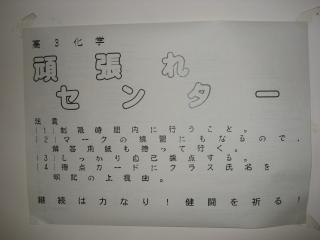 高３化学
頑張れ
センター
注意
(1)制限時間内に行うこと。
(2)マークの練習にもなるので、
解答用紙も持って行く。
(3)しっかり自己採点する。
(4)得点カードにクラス氏名を
明記の上提出。
継続は力なり！健闘を祈る！